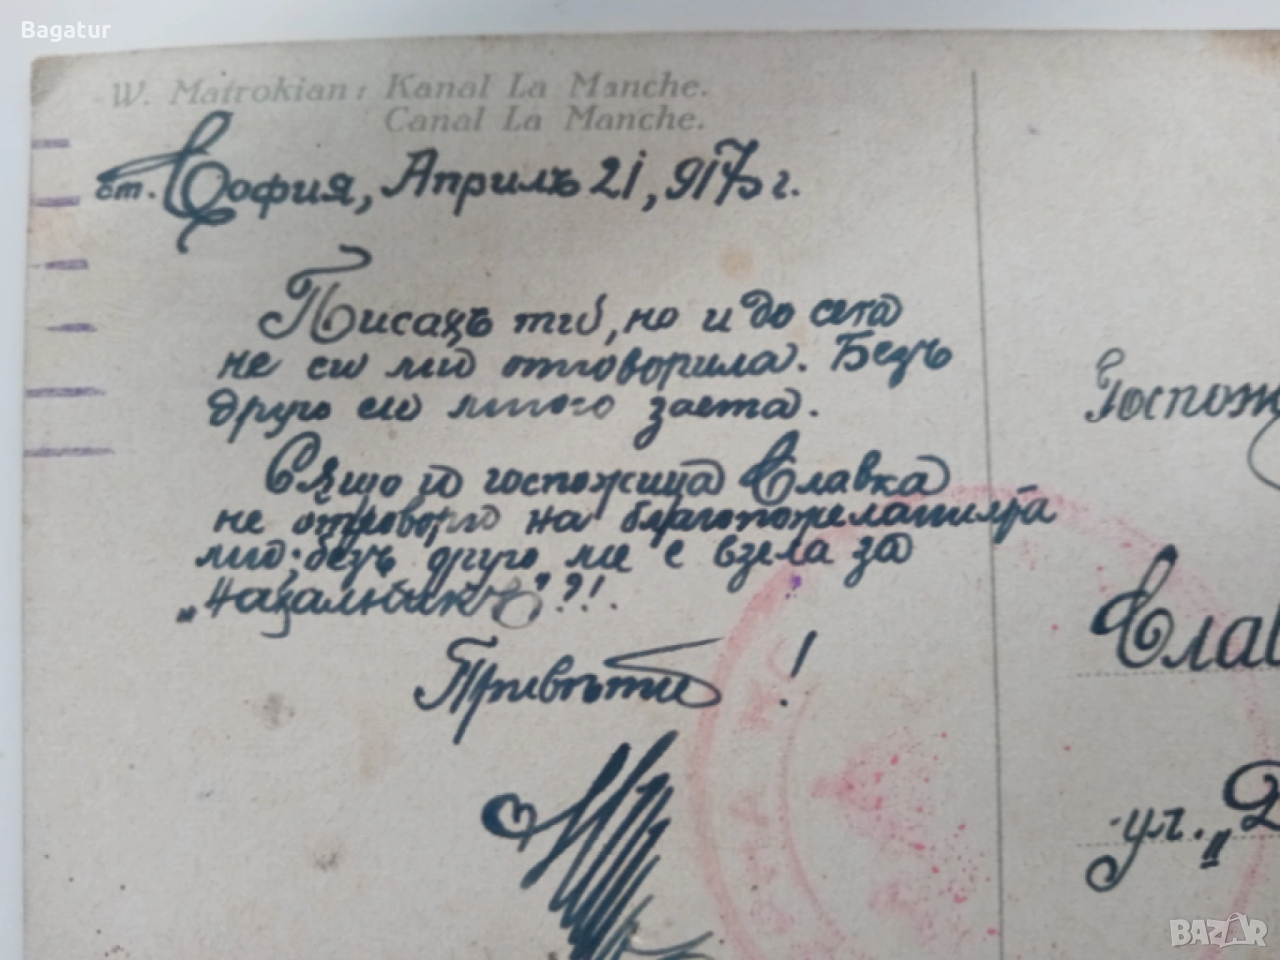 Bagatur
W. Matrokian: Kanal La Manche.
Canal La Manche.
ст. София, Априлъ 21, 917 г.
Писахъ ти, но и до сега
не си ми отговорила. Безъ
друго си много заета.
Също и госпожица Славка
не отговори на благопожеланията
ми; безъ друго ме е взела за
„нахалникъ“?!.
Привѣти!
Госпож
Слав
ул. „
BAZAR